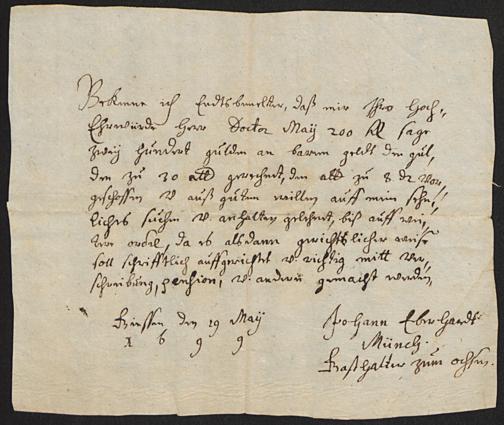 Bekenne ich Endtsbemelter, daß mir Ihro Hoch-
Ehrwürde Herr Doctor May 200 fl sage
zwey hundert gulden an barem geldt den gul-
den zu 30 alb gerechnet, den alb zu 8 d2 vor-
geschossen v auß gutem willen auff mein sehn-
liches suchen v. anhalten gelehnet, biß auff wei-
tere ordel, da es alsdann gerichtlicher weise
soll schrifftlich auffgerichtet v. richtig mitt ver-
schreibung, pension, v. andern gemacht werden,
Giessen den 19 May
1 6 9 9
Johann Eberhardt
Münch.
Gasthalter zum ochsen.